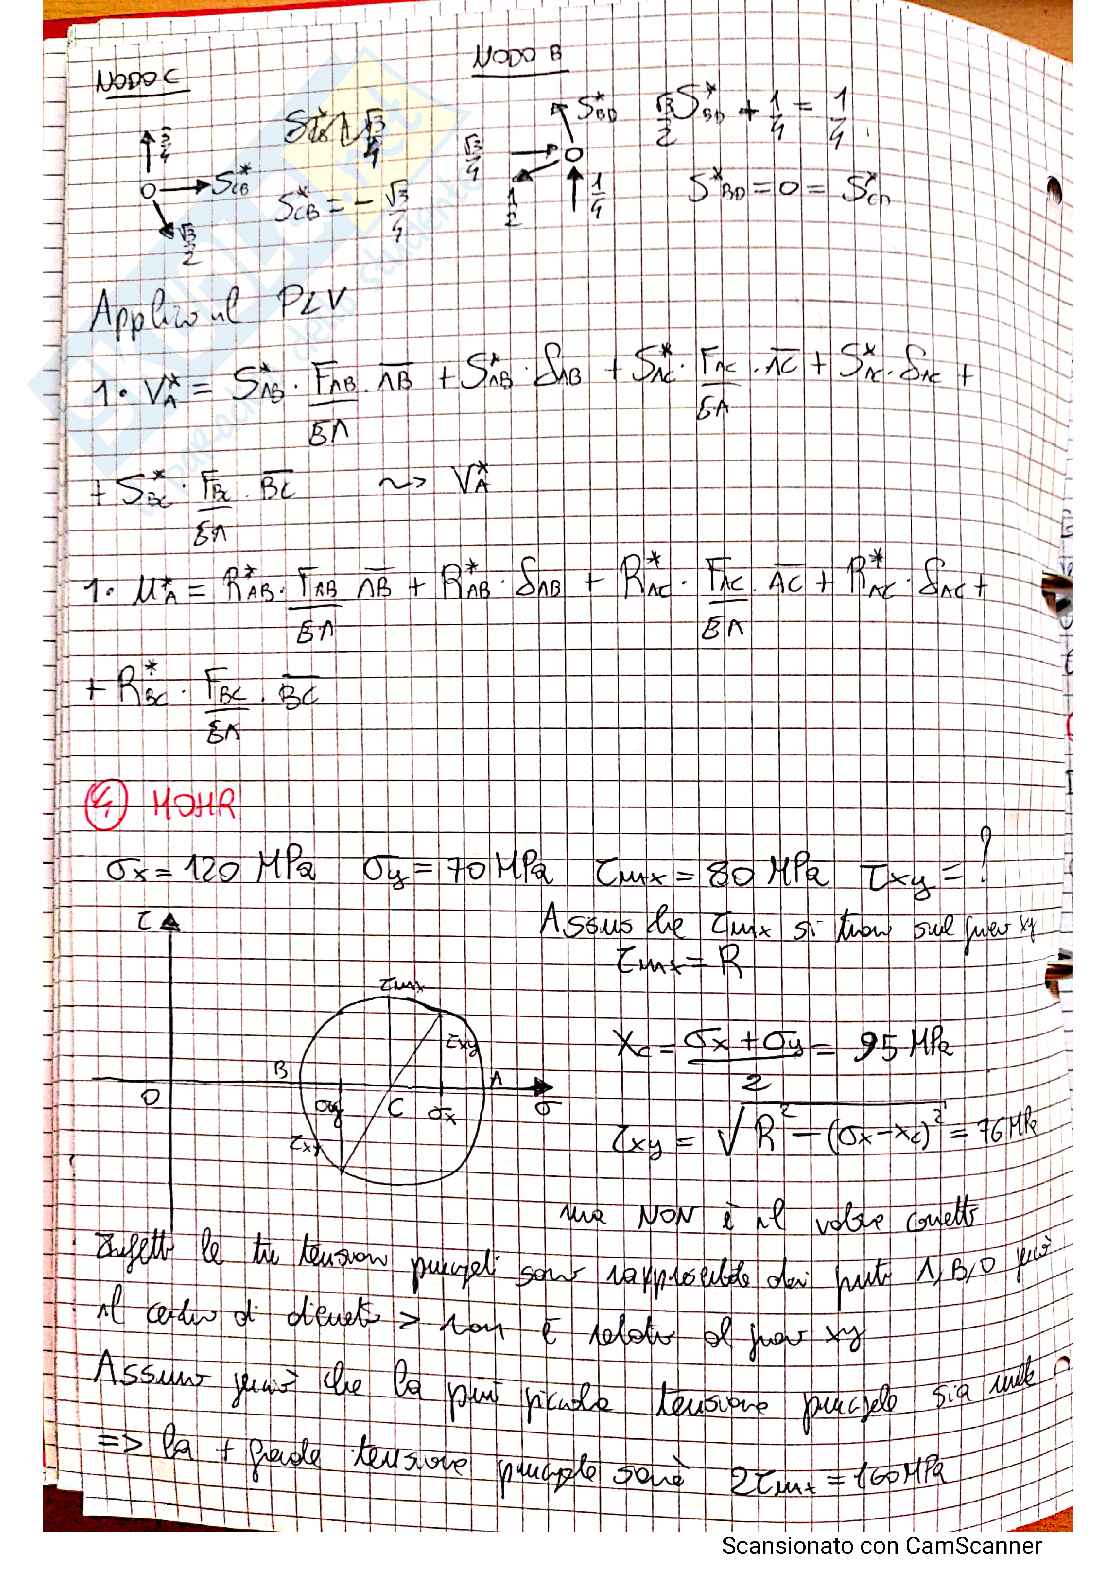 NODO C
NODO B
3/4
S*CB
√3/2
S*CB = - √3/4
√3/4
S*BD
1/2
1/4
√3/2 S*BD + 1/4 = 1/4
S*BD = 0 = S*CD
Applico il PLV
1 · V*A = S*AB · FAB/EA · AB + S*AB · δAB + S*AC · FAC/EA · AC + S*AC · δAC +
+ S*BC · FBC/EA · BC ~> V*A
1 · μ*A = R*AB · FAB/EA AB + R*AB · δAB + R*AC · FAC/EA · AC + R*AC · δAC +
+ R*BC · FBC/EA · BC
4 MOHR
σx = 120 MPa σy = 70 MPa τmx = 80 MPa τxy = ?
Assumo che τmx si trovi sul piano xy
τmx = R
τ
τmx
τxy
B
A
O
σy
C
σx
σ
τxy
Xc = σx + σy / 2 = 95 MPa
τxy = √R² - (σx - xc)² = 76 MPa
ma NON è il valore corretto
Infatti le tre tensioni principali sono rappresentate dai punti A, B, O perciò
il cerchio di diametro > non è relativo al piano xy
Assumo perciò che la più piccola tensione principale sia nulla
=> la + grande tensione principale sarà 2τmx = 160 MPa
Scansionato con CamScanner